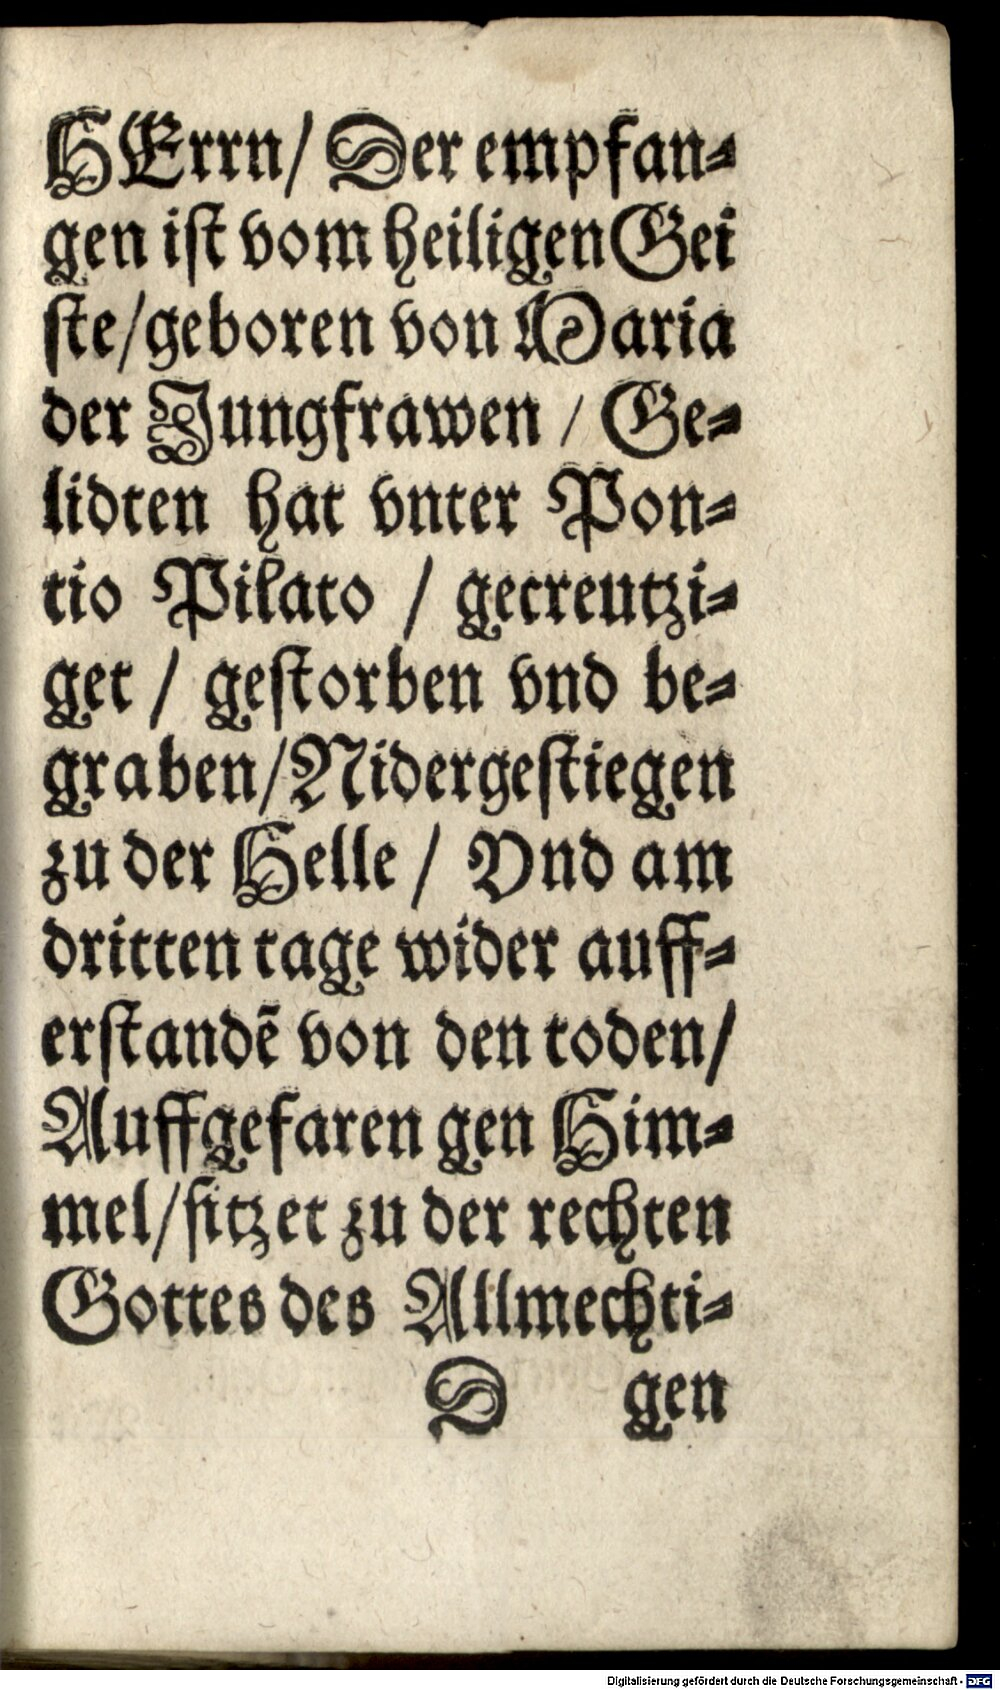 HErrn/ Der empfan⸗
gen ist vom heiligen Gei
ste/geboren von Maria
der Jungfrawen / Ge⸗
lidten hat vnter Pon⸗
tio Pilato / gecreutzi⸗
get / gestorben vnd be⸗
graben/Nidergestiegen
zu der Helle / Vnd am
dritten tage wider auff⸗
erstandẽ von den toden/
Auffgefaren gen Him⸗
mel/sitzet zu der rechten
Gottes des Allmechti⸗
D gen
Digitalisierung gefördert durch die Deutsche Forschungsgemeinschaft - DFG